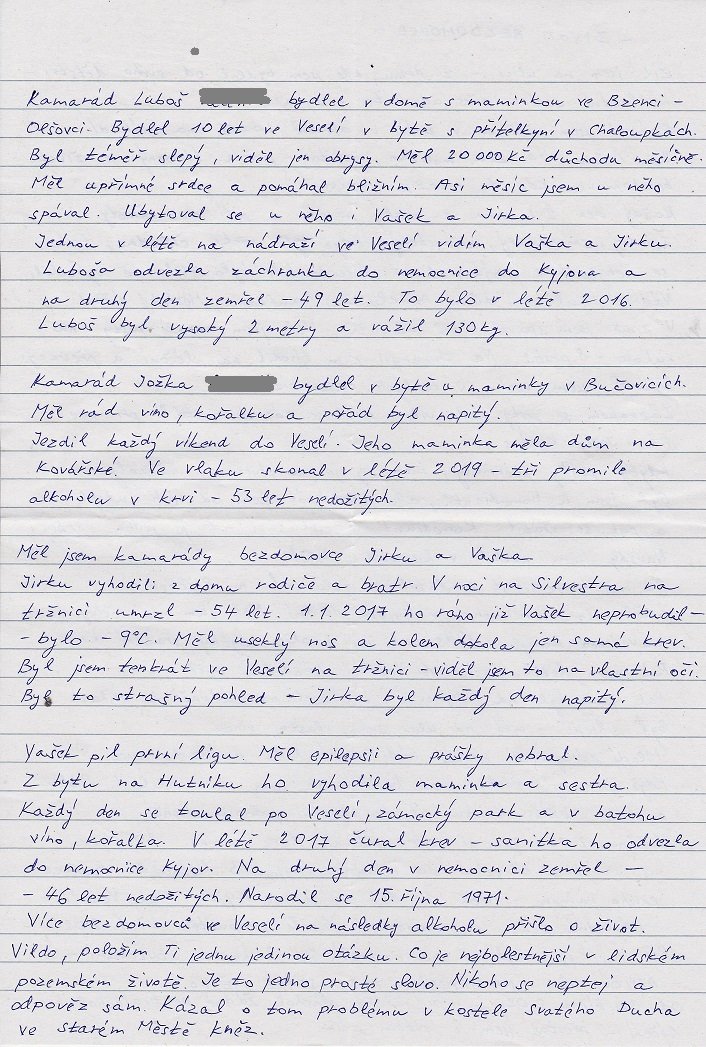 Kamarád Luboš bydlel v domě s maminkou ve Bzenci -
Olšovci. Bydlel 10 let ve Veselí v bytě s přítelkyní v Chaloupkách.
Byl téměř slepý, viděl jen obrysy. Měl 20 000 Kč důchodu měsíčně.
Měl upřímné srdce a pomáhal bližním. Asi měsíc jsem u něho
spával. Ubytoval se u něho i Vašek a Jirka.
Jednou v létě na nádraží ve Veselí vidím Vaška a Jirku.
Luboša odvezla záchranka do nemocnice do Kyjova a
na druhý den zemřel - 49 let. To bylo v létě 2016.
Luboš byl vysoký 2 metry a vážil 130 kg.
Kamarád Jožka bydlel v bytě u maminky v Bučovicích.
Měl rád víno, kořalku a pořád byl napitý.
Jezdil každý víkend do Veselí. Jeho maminka měla dům na
Kovářské. Ve vlaku skonal v létě 2019 - tři promile
alkoholu v krvi - 53 let nedožitých.
Měl jsem kamarády bezdomovce Jirku a Vaška
Jirku vyhodili z domu rodiče a bratr. V noci na Silvestra na
tržnici umrzl - 54 let. 1.1.2017 ho ráno již Vašek neprobudil -
- bylo - 9°C. Měl useklý nos a kolem dokola jen samá krev.
Byl jsem tenkrát ve Veselí na tržnici - viděl jsem to na vlastní oči.
Byl to strašný pohled - Jirka byl každý den napitý.
Vašek pil první ligu. Měl epilepsii a prášky nebral.
Z bytu na Hutníku ho vyhodila maminka a sestra.
Každý den se toulal po Veselí, zámecký park a v batohu
víno, kořalka. V létě 2017 čural krev - sanitka ho odvezla
do nemocnice Kyjov. Na druhý den v nemocnici zemřel -
- 46 let nedožitých. Narodil se 15. října 1971.
Více bezdomovců ve Veselí na následky alkoholu přišlo o život.
Vildo, položím Ti jednu jedinou otázku. Co je nejbolestnější v lidském
pozemském životě. Je to jedno prosté slovo. Nikoho se neptej a
odpověz sám. Kázal o tom problému v kostele svatého Ducha
ve starém Městě kněz.